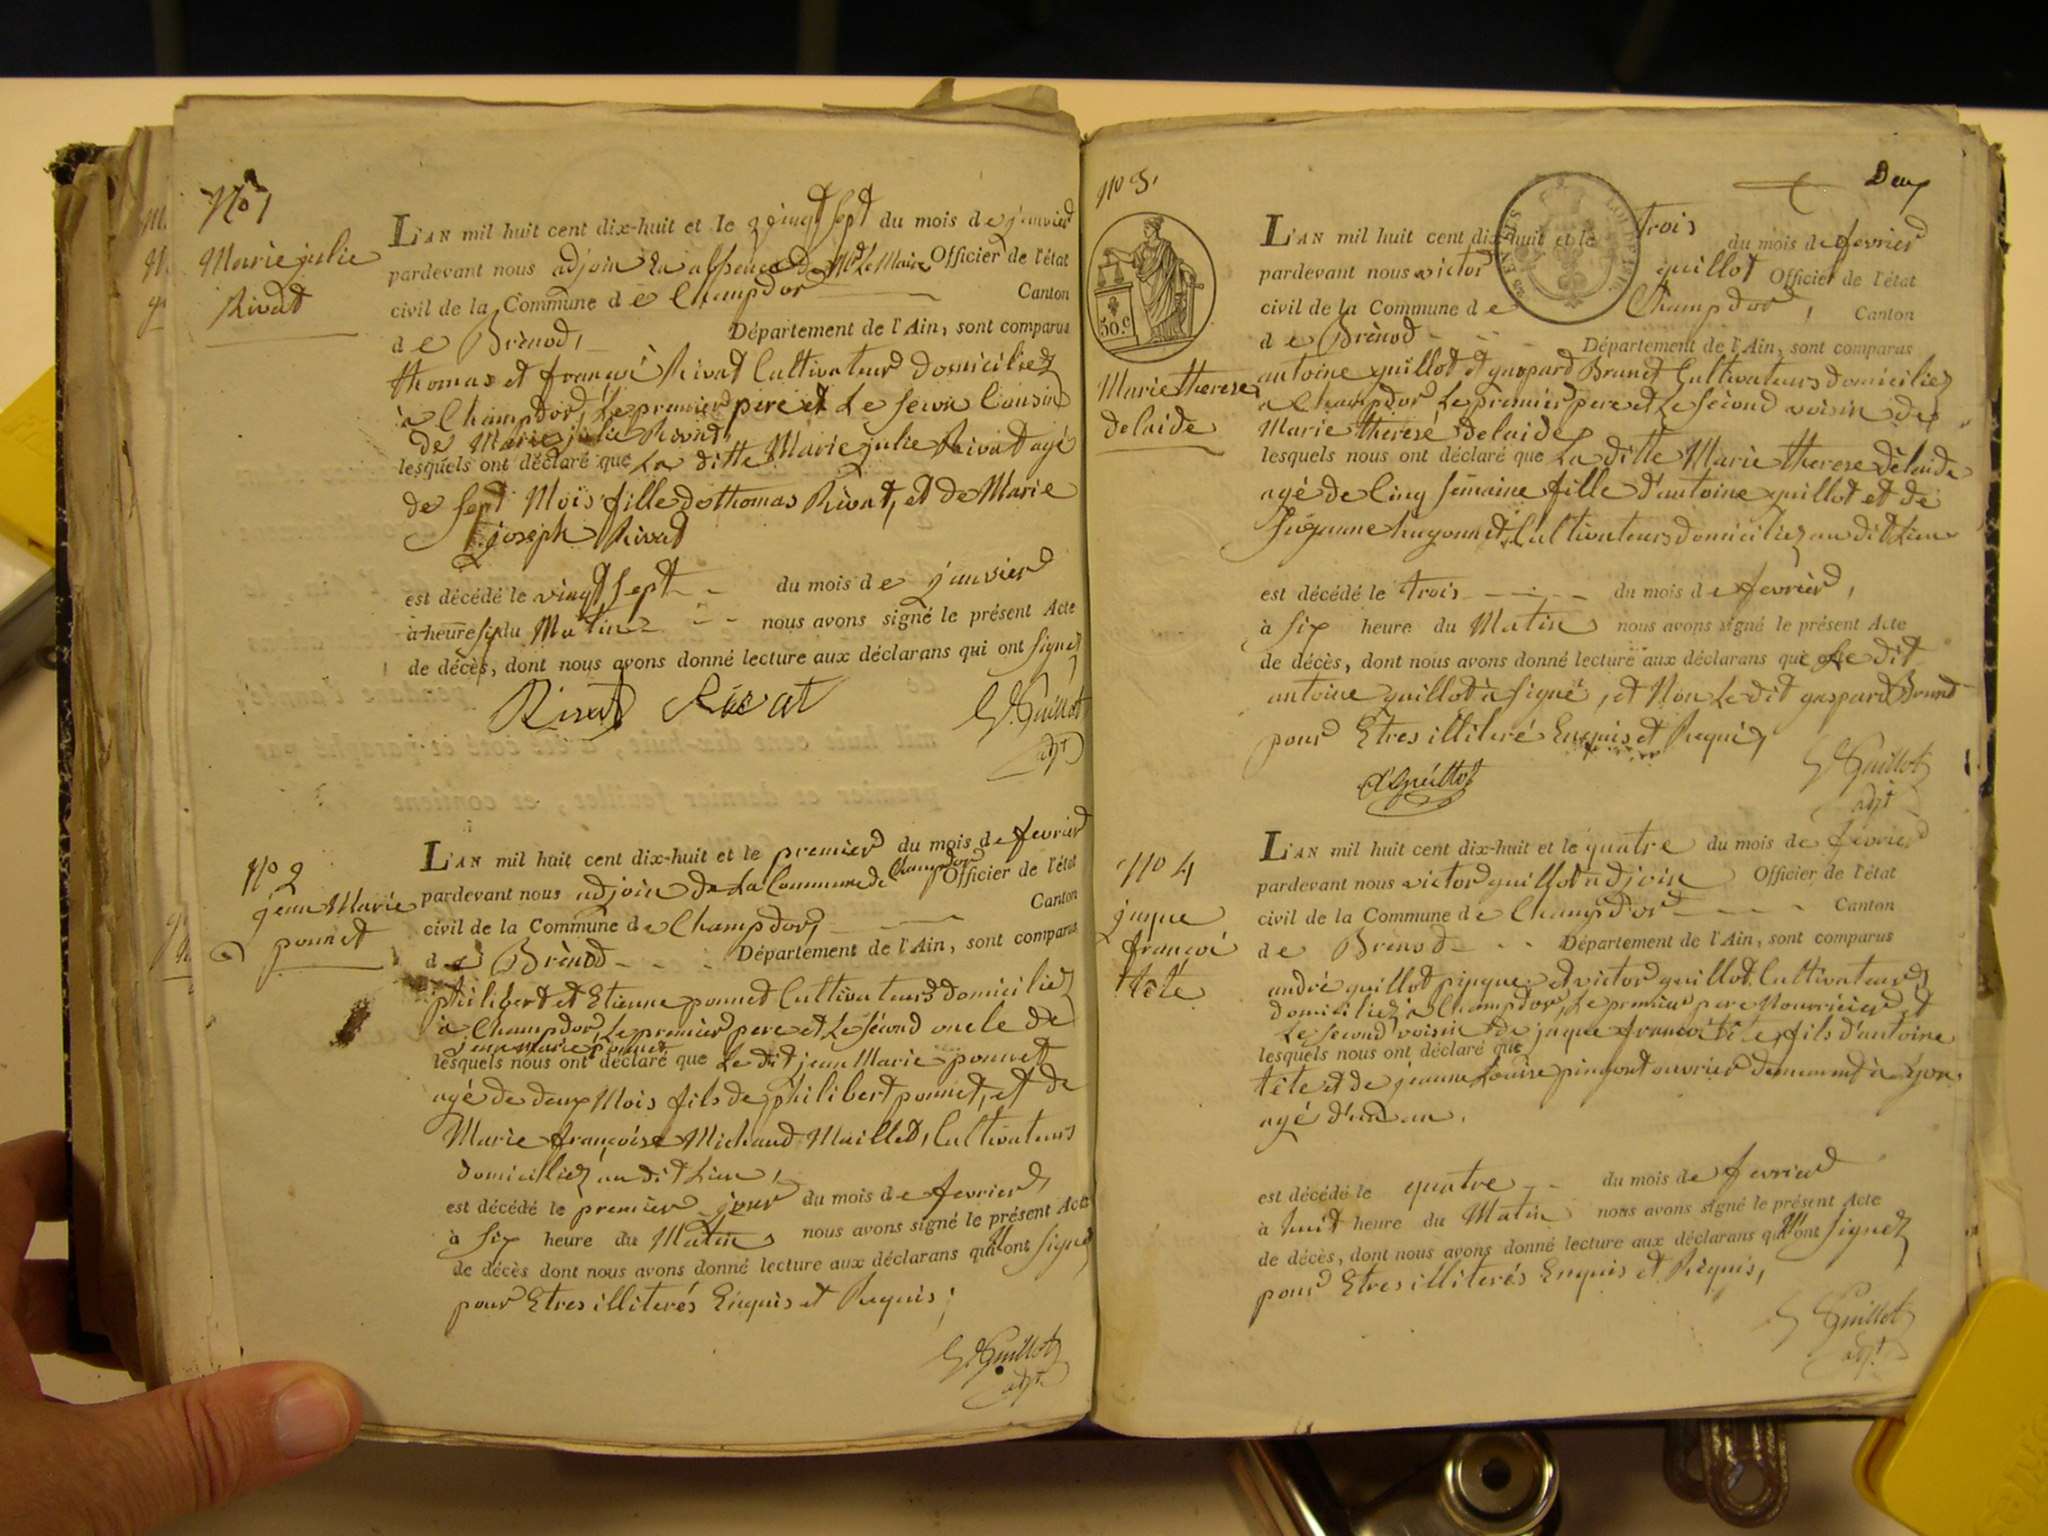 No 1
Marie julie
Rivat
L'AN mil huit cent dix-huit et le vingt sept du mois de janvier
pardevant nous adjoin En absence de Mr Le Maire Officier de l'état
civil de la Commune de Champdor Canton
de Brènod, Département de l'Ain, sont comparus
thomas et françoi Rivat Cultivateurs domiciliez
à Champdor, Le premier pere et Le secon Cousin
de Marie julie Rivat,
lesquels ont déclaré que La ditte Marie julie Rivat agé
de sept Mois fille de thomas Rivat, et de Marie
joseph Rivat
est décédé le vingt sept du mois de janvier
à heure six du Matin nous avons signé le présent Acte
de décès, dont nous avons donné lecture aux déclarans qui ont signez
Rivat Rivat Guillot
adjt
No 2
jean Marie
ponnet
L'AN mil huit cent dix-huit et le premier du mois de fevrier
pardevant nous adjoin de La Commune de Champdor Officier de l'état
civil de la Commune de Champdor, Canton
de Brènod Département de l'Ain, sont comparus
philibert et Etienne ponnet Cultivateurs domiciliez
à Champdor, Le premier pere et Le sécond oncle de
jean marie ponnet
lesquels nous ont déclaré que Le dit jean Marie ponnet
agé de deux Mois fils de philibert ponnet, et de
Marie françoise Michaud Maillet, Cultivateurs
domiciliez au dit Lieu,
est décédé le premier jour du mois de fevrier,
à six heure du Matin nous avons signé le présent Acte
de décès dont nous avons donné lecture aux déclarans qui N'ont signez
pour Etres illiterés Enquis et Requis;
Guillot
adjt
Deux
No 3,
50.c
Marie therese
delaide
L'AN mil huit cent dix-huit et le trois du mois de fevrier
pardevant nous victor guillot Officier de l'état
civil de la Commune de Champdor, Canton
de Brènod Département de l'Ain, sont comparus
antoine guillot et gaspard Brunet Cultivateurs domiciliez
a Champdor Le premier pere et Le sécond voisin de
Marie therese delaide
lesquels nous ont déclaré que La ditte Marie therese dèlaide
agé de Cinq semaine fille d'antoine guillot et de
Suzanne hugonnet, Cultivateurs domiciliez au dit Lieu
est décédé le trois du mois de fevrier,
à six heure du Matin nous avons signé le présent Acte
de décès, dont nous avons donné lecture aux déclarans que Le dit
antoine guillot à signé, et Non Le dit gaspard Brunet
pour Etres illiteré Enquis et Requis,
A Guillot Guillot
adjt
No 4
jaque
françoi
tête
L'AN mil huit cent dix-huit et le quatre du mois de fèvrier
pardevant nous victor guillot adjoin Officier de l'état
civil de la Commune de Champdor Canton
de Brenod Département de l'Ain, sont comparus
andré guillot et victor guillot Cultivateurs
domiciliez à Champdor, Le premier pere Nourricier et
Le second voisin de jaque françoi tête, fils d'antoine
lesquels nous ont déclaré que
tête et de jeanne Louise ouvrier demeurant à Lyon
agé d'un an.
est décédé le quatre du mois de fevrier
à huit heure du Matin nous avons signé le présent Acte
de décès, dont nous avons donné lecture aux déclarans qui N'ont signez
pour Etres illiterés Enquis et Requis,
Guillot
adjt